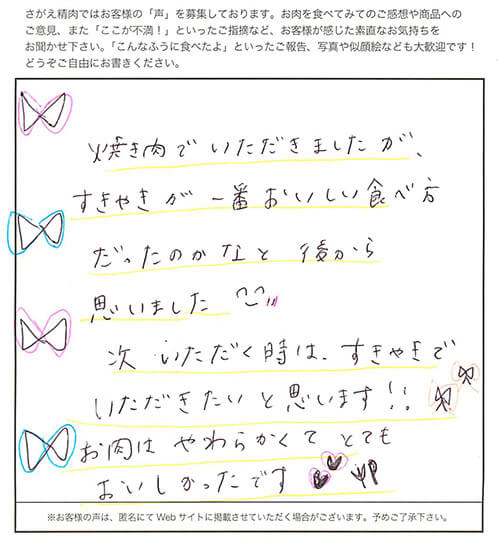 さがえ精肉ではお客様の「声」を募集しております。お肉を食べてみてのご感想や商品への
ご意見、また「ここが不満！」といったご指摘など、お客様が感じた素直なお気持ちを
お聞かせ下さい。「こんなふうに食べたよ」といったご報告、写真や似顔絵なども大歓迎です！
どうぞご自由にお書きください。
焼き肉でいただきましたが、
すきやきが一番おいしい食べ方
だったのかなと後から
思いました
次いただく時は、すきやきで
いただきたいと思います!!
お肉はやわらかくてとても
おいしかったです
※お客様の声は、匿名にてWebサイトに掲載させていただく場合がございます。予めご了承下さい。